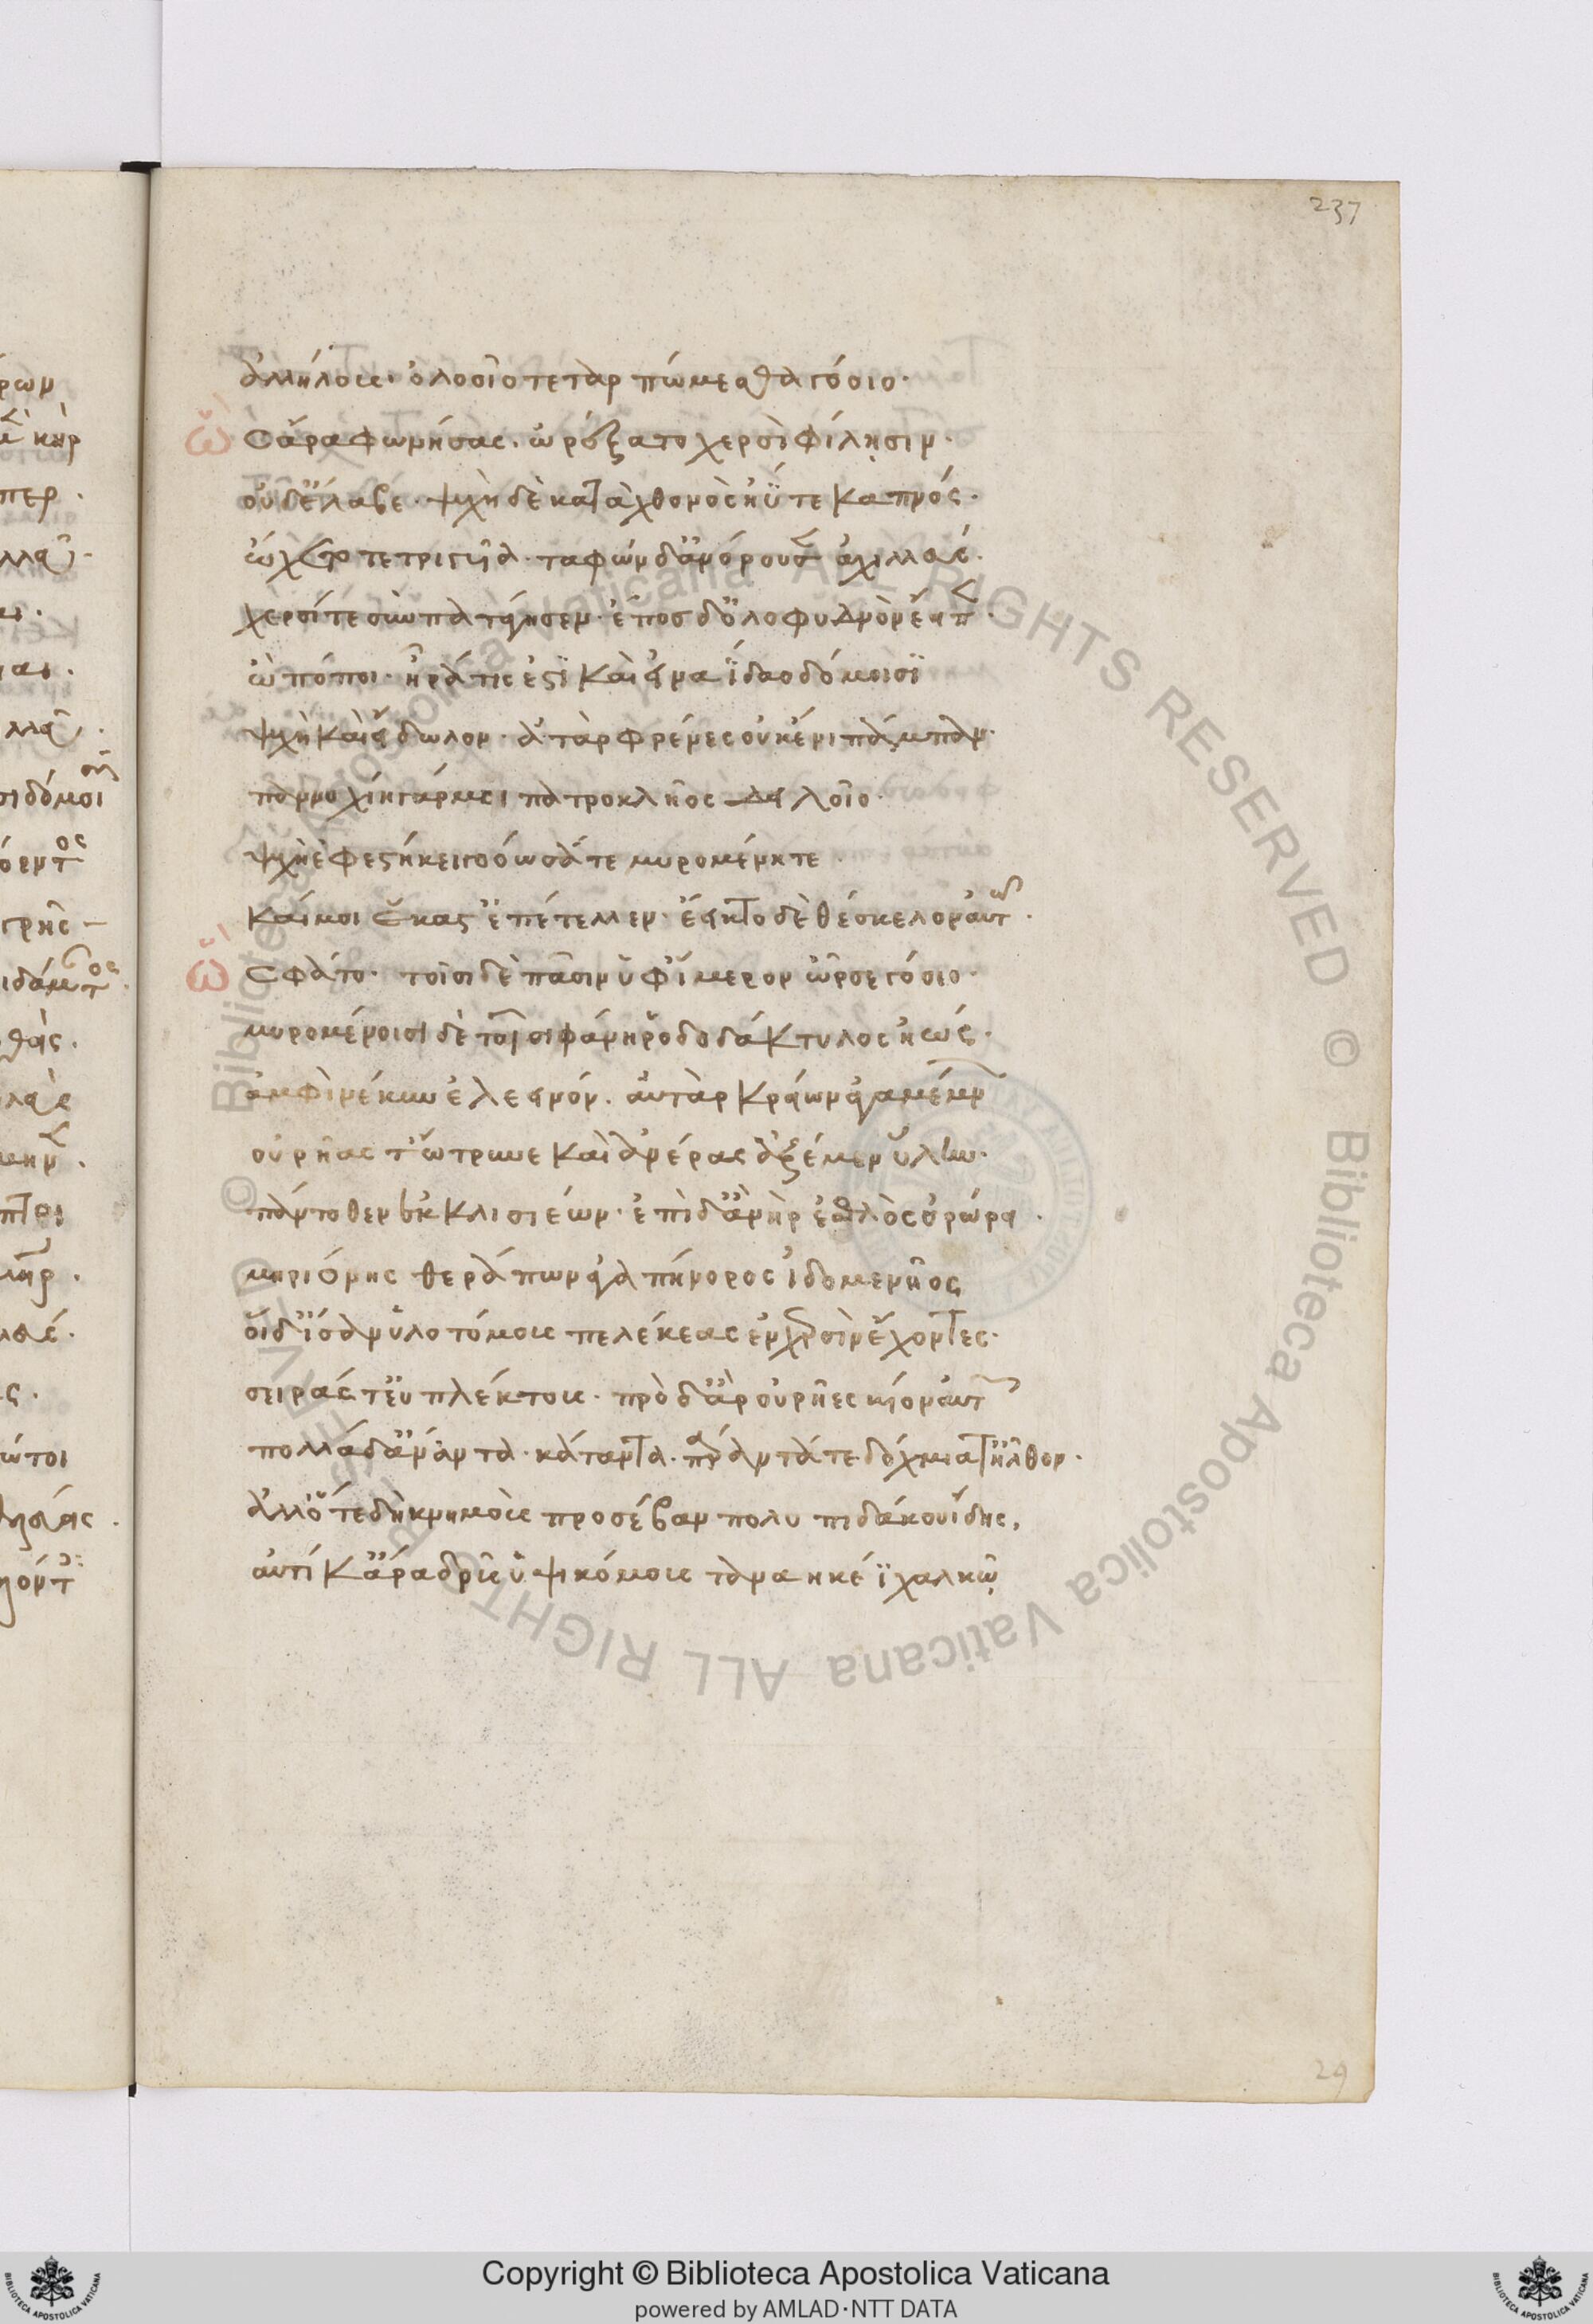 237
ἀλλήλοις· ὀλοοῖο τεταρπώμεσθα γόοιο·
ὣς ἄρα φωνήσας. ὠρέξατο χερσὶ φίλῃσιν·
οὐδ' ἔλαβε· ψυχὴ δὲ κατὰ χθονὸς ἠΰτε καπνός·
ᾤχετο τετριγυῖα· ταφὼν δ' ἀνόρουσεν ἀχιλλεύς·
χερσί τε συμπατάγησεν· ἔπος δ' ὀλοφυδνὸν ἔειπε·
ὢ πόποι· ἦ ρά τις ἐστὶ καὶ εἰν ἀΐδαο δόμοισι
ψυχὴ καὶ εἴδωλον· ἀτὰρ φρένες οὐκ ἔνι πάμπαν·
παννυχίη γάρ μοι πατροκλῆος δειλοῖο·
ψυχὴ ἐφεστήκει γοόωσά τε μυρομένη τε·
καί μοι ἕκαστ' ἐπέτελλεν· ἔϊκτο δὲ θέσκελον αὐτῷ·
ὣς φάτο· τοῖσι δὲ πᾶσιν ὑφ' ἵμερον ὦρσε γόοιο·
μυρομένοισι δὲ τοῖσι φάνη ῥοδοδάκτυλος ἠώς·
ἀμφὶ νέκυν ἐλεεινόν. αὐτὰρ κρείων ἀγαμέμνων
οὐρῆας τ' ὤτρυνε καὶ ἀνέρας ἀξέμεν ὕλην·
πάντοθεν ἐκ κλισιέων· ἐπὶ δ' ἀνὴρ ἐσθλὸς ὀρώρει·
μηριόνης θεράπων ἀγαπήνορος ἰδομενῆος
οἱ δ' ἴσαν ὑλοτόμους πελέκεας ἐν χερσὶν ἔχοντες·
σειράς τ' εὐπλέκτους· πρὸ δ' ἄρ οὐρῆες κίον αὐτῶν
πολλὰ δ' ἄναντα· κάταντα· πάραντά τε δόχμιά τ' ἦλθον·
ἀλλ' ὅτε δὴ κνημοὺς προσέβαν πολυπιδάκου ἴδης,
αὐτίκ' ἄρα δρῦς ὑψικόμους ταναηκέϊ χαλκῷ
29
Copyright © Biblioteca Apostolica Vaticana
powered by AMLAD·NTT DATA